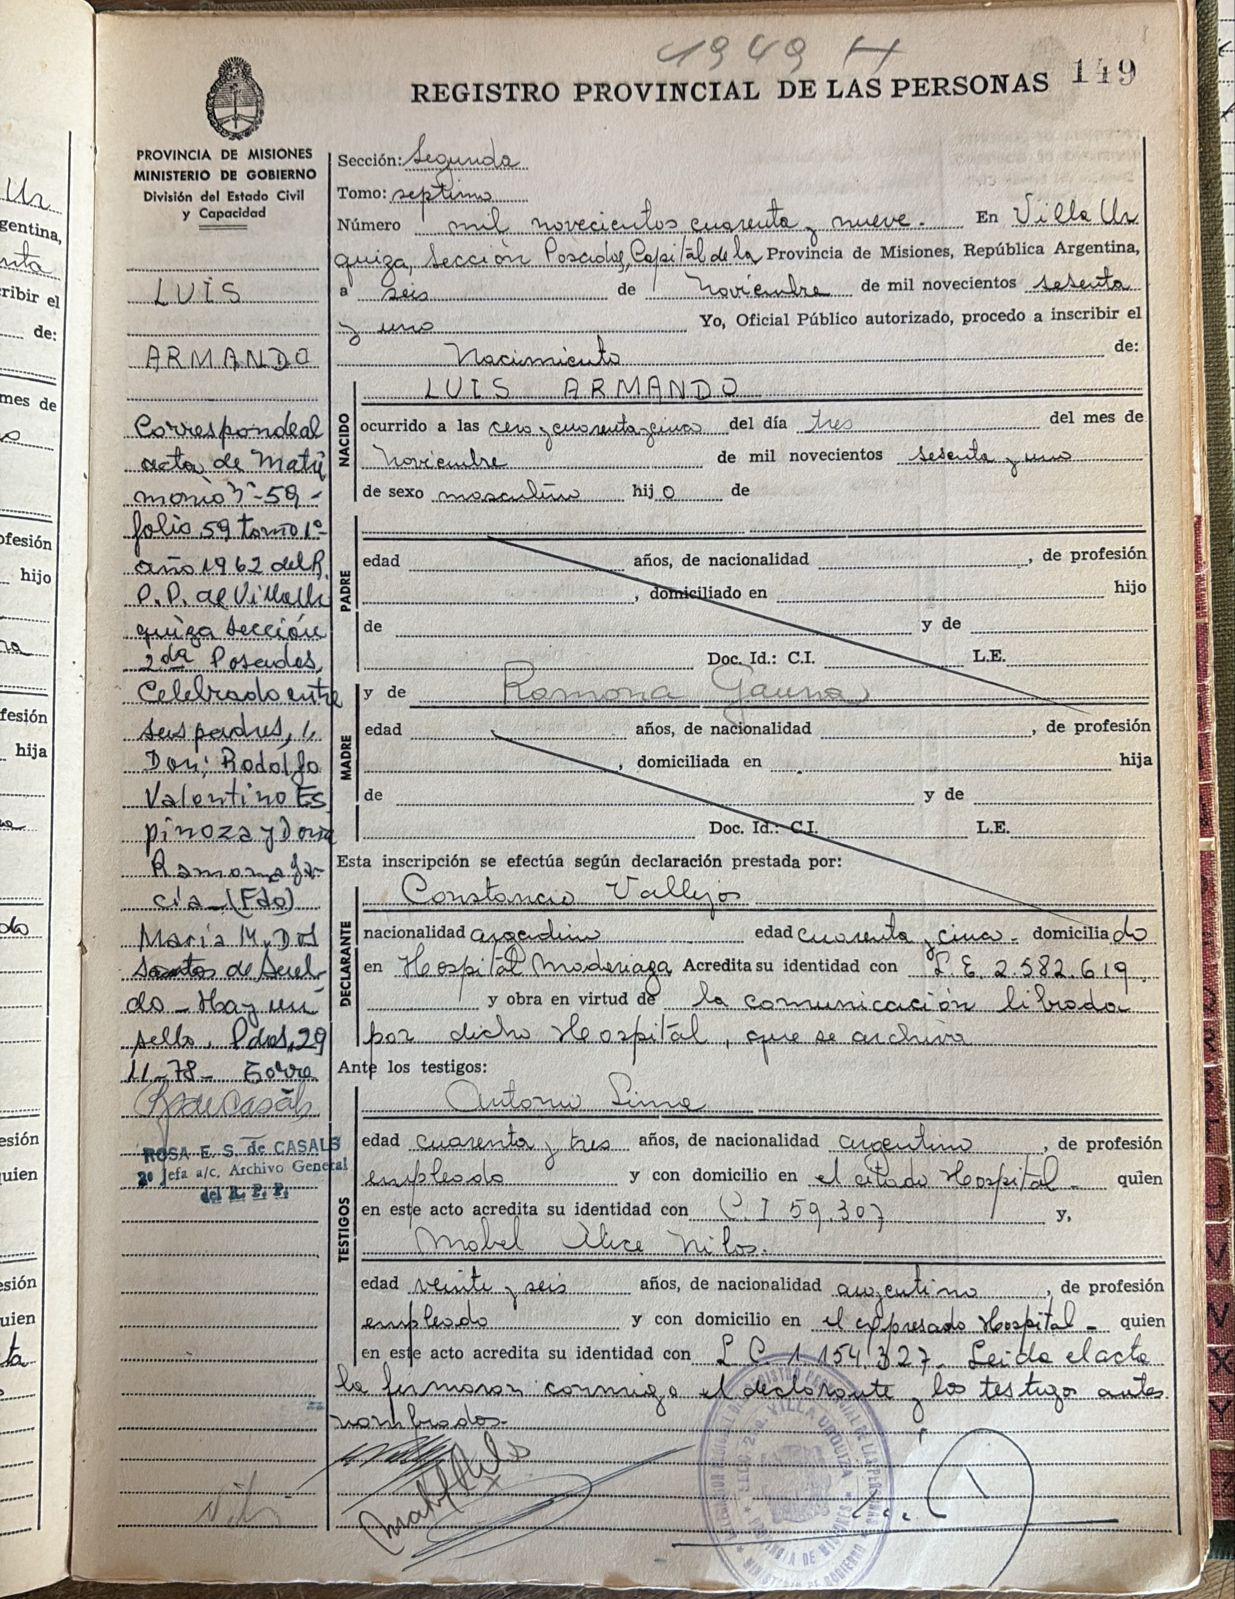 1949 H
REGISTRO PROVINCIAL DE LAS PERSONAS 149
PROVINCIA DE MISIONES
MINISTERIO DE GOBIERNO
División del Estado Civil
y Capacidad
LUIS
ARMANDO
Corresponde al
acta de Matri
monio Nº-59-
folio 59 tomo 1º
año 1962 del R.
P.P. de Villa Ur
quiza Sección
2da Posadas,
Celebrado entre
sus padres,
Don; Rodolfo
Valentino Es
pinoza y Doña
Ramona Ga-
cía-(Fdo)
María M. Dos
Santos de
do- Hay un
sello. Pdas, 29
11-78-
ROSA E. S. de CASALS
2º Jefa a/c. Archivo General
del R. P. P.
Sección: Segunda
Tomo: septimo
Número mil novecientos cuarenta y nueve. En Villa Ur
quiza, Sección Posadas, Capital de la Provincia de Misiones, República Argentina,
a seis de Noviembre de mil novecientos sesenta
y uno Yo, Oficial Público autorizado, procedo a inscribir el
Nacimiento de:
NACIDO
LUIS ARMANDO
ocurrido a las cero y cuarenta y cinco del día tres del mes de
Noviembre de mil novecientos sesenta y uno
de sexo masculino hijo de
PADRE
edad años, de nacionalidad , de profesión
, domiciliado en hijo
de y de
Doc. Id.: C.I. L.E.
MADRE
y de Ramona Gauna
edad años, de nacionalidad , de profesión
, domiciliada en hija
de y de
Doc. Id.: C.I. L.E.
Esta inscripción se efectúa según declaración prestada por:
DECLARANTE
Constancio Vallejos
nacionalidad argentino edad cuarenta y cinco- domiciliado
en Hospital Madariaga Acredita su identidad con L.E. 2.582.619
y obra en virtud de la comunicación librada
por dicho Hospital, que se archiva
Ante los testigos:
TESTIGOS
Antonio Lima
edad cuarenta y tres años, de nacionalidad argentino, de profesión
empleado y con domicilio en el citado Hospital- quien
en este acto acredita su identidad con C.I 59.307 y,
Mabel Alice Nilos.
edad veinte y seis años, de nacionalidad argentina, de profesión
empleado y con domicilio en el expresado Hospital- quien
en este acto acredita su identidad con L.C. 1.154.327- Leida el acta
la firmaron conmigo el declarante y los testigos antes
nombrados-